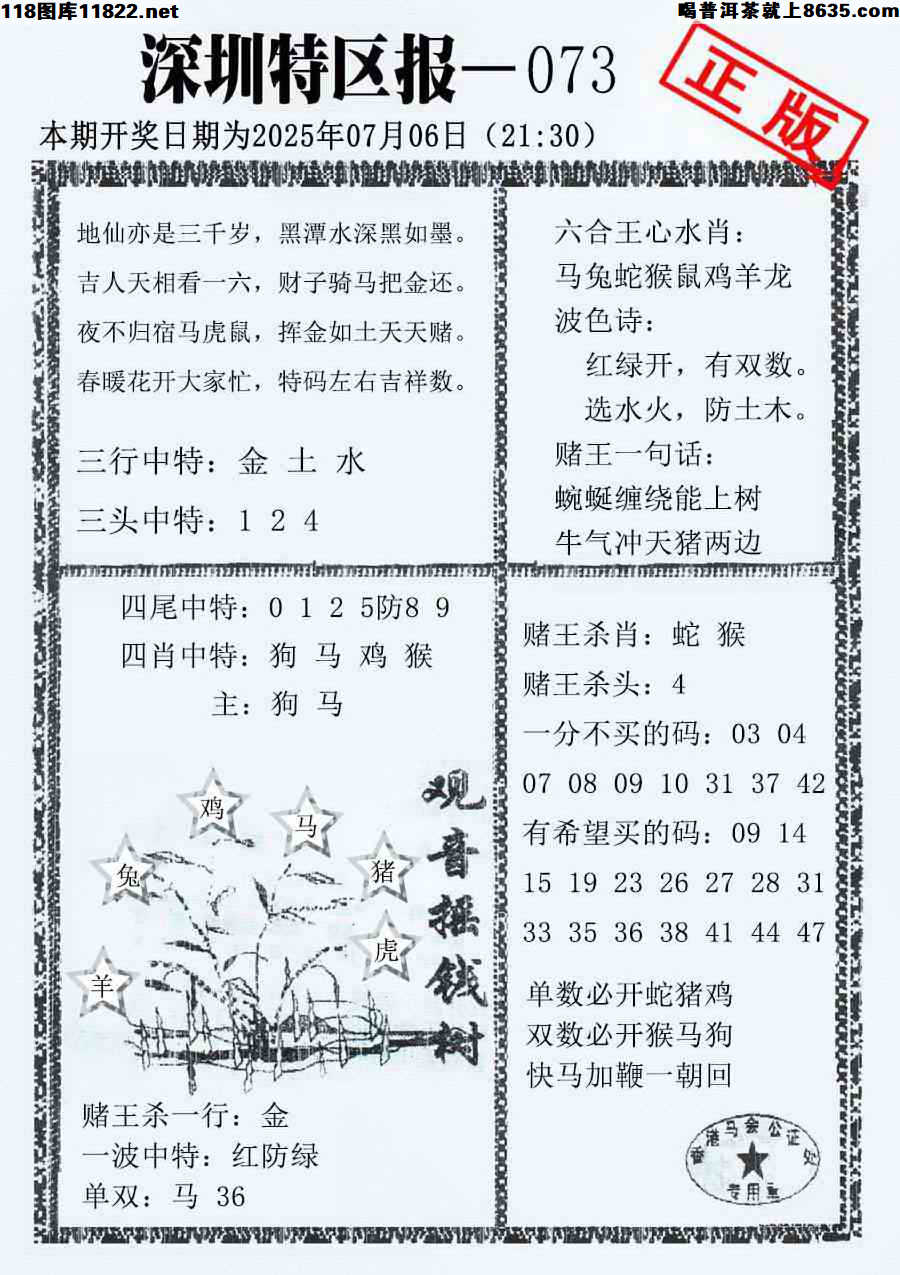 118图库11822.net
喝普洱茶就上8635.com
深圳特区报—073
正版
本期开奖日期为2025年07月06日（21:30）
地仙亦是三千岁，黑潭水深黑如墨。
吉人天相看一六，财子骑马把金还。
夜不归宿马虎鼠，挥金如土天天赌。
春暖花开大家忙，特码左右吉祥数。
三行中特：金 土 水
三头中特：1 2 4
六合王心水肖：
马兔蛇猴鼠鸡羊龙
波色诗：
红绿开，有双数。
选水火，防土木。
赌王一句话：
蜿蜒缠绕能上树
牛气冲天猪两边
四尾中特：0 1 2 5防8 9
四肖中特：狗 马 鸡 猴
主：狗 马
鸡
马
兔
猪
虎
羊
观音摇钱树
赌王杀一行：金
一波中特：红防绿
单双：马 36
赌王杀肖：蛇 猴
赌王杀头：4
一分不买的码：03 04
07 08 09 10 31 37 42
有希望买的码：09 14
15 19 23 26 27 28 31
33 35 36 38 41 44 47
单数必开蛇猪鸡
双数必开猴马狗
快马加鞭一朝回
香港马会公证处
专用章